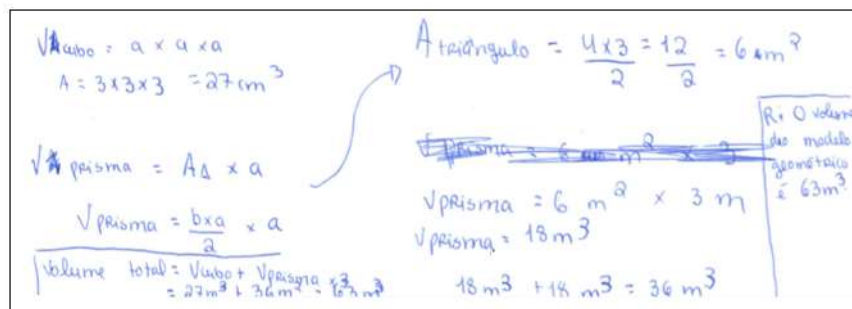 V cubo = a x a x a
A = 3x3x3 = 27 cm³
V prisma = A∆ x a
V prisma = b x a / 2 x a
Volume total = Vcubo + Vprisma x2
= 27m³ + 36m³ = 63 m³
A triângulo = 4x3 / 2 = 12 / 2 = 6 m²
Vprisma = 6 m² x 3
Vprisma = 6 m² x 3 m
Vprisma = 18m³
18m³ + 18 m³ = 36 m³
R: O volume
do modelo
geométrico
é 63m³